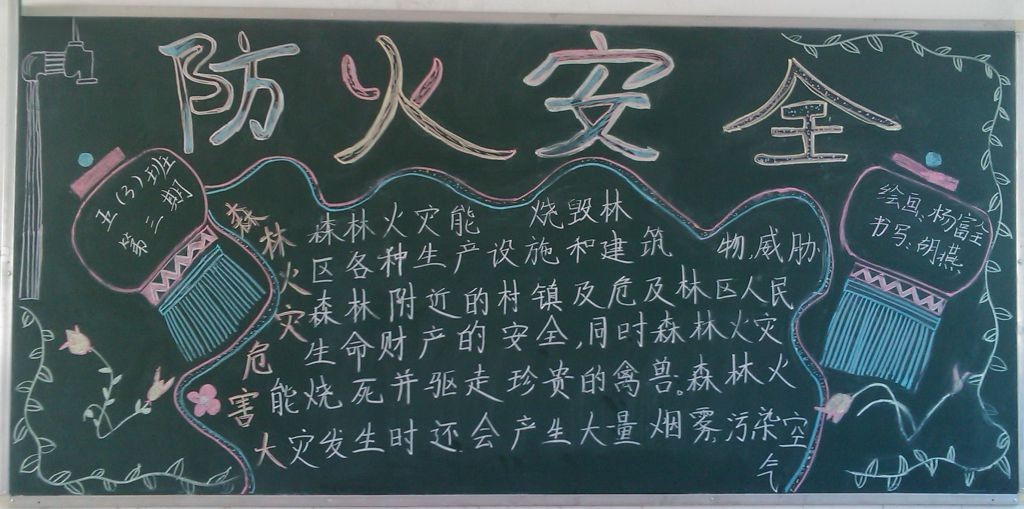 防火安全
五(3)班
第三期
绘画、杨富全
书写、胡燕
森林火灾危害
森林火灾能 烧毁林
区各种生产设施和建筑 物,威胁
森林附近的村镇及危及林区人民
生命财产的安全,同时森林火灾
能烧死并驱走珍贵的禽兽。森林火
大灾发生时还会产生大量烟雾,污染空
气